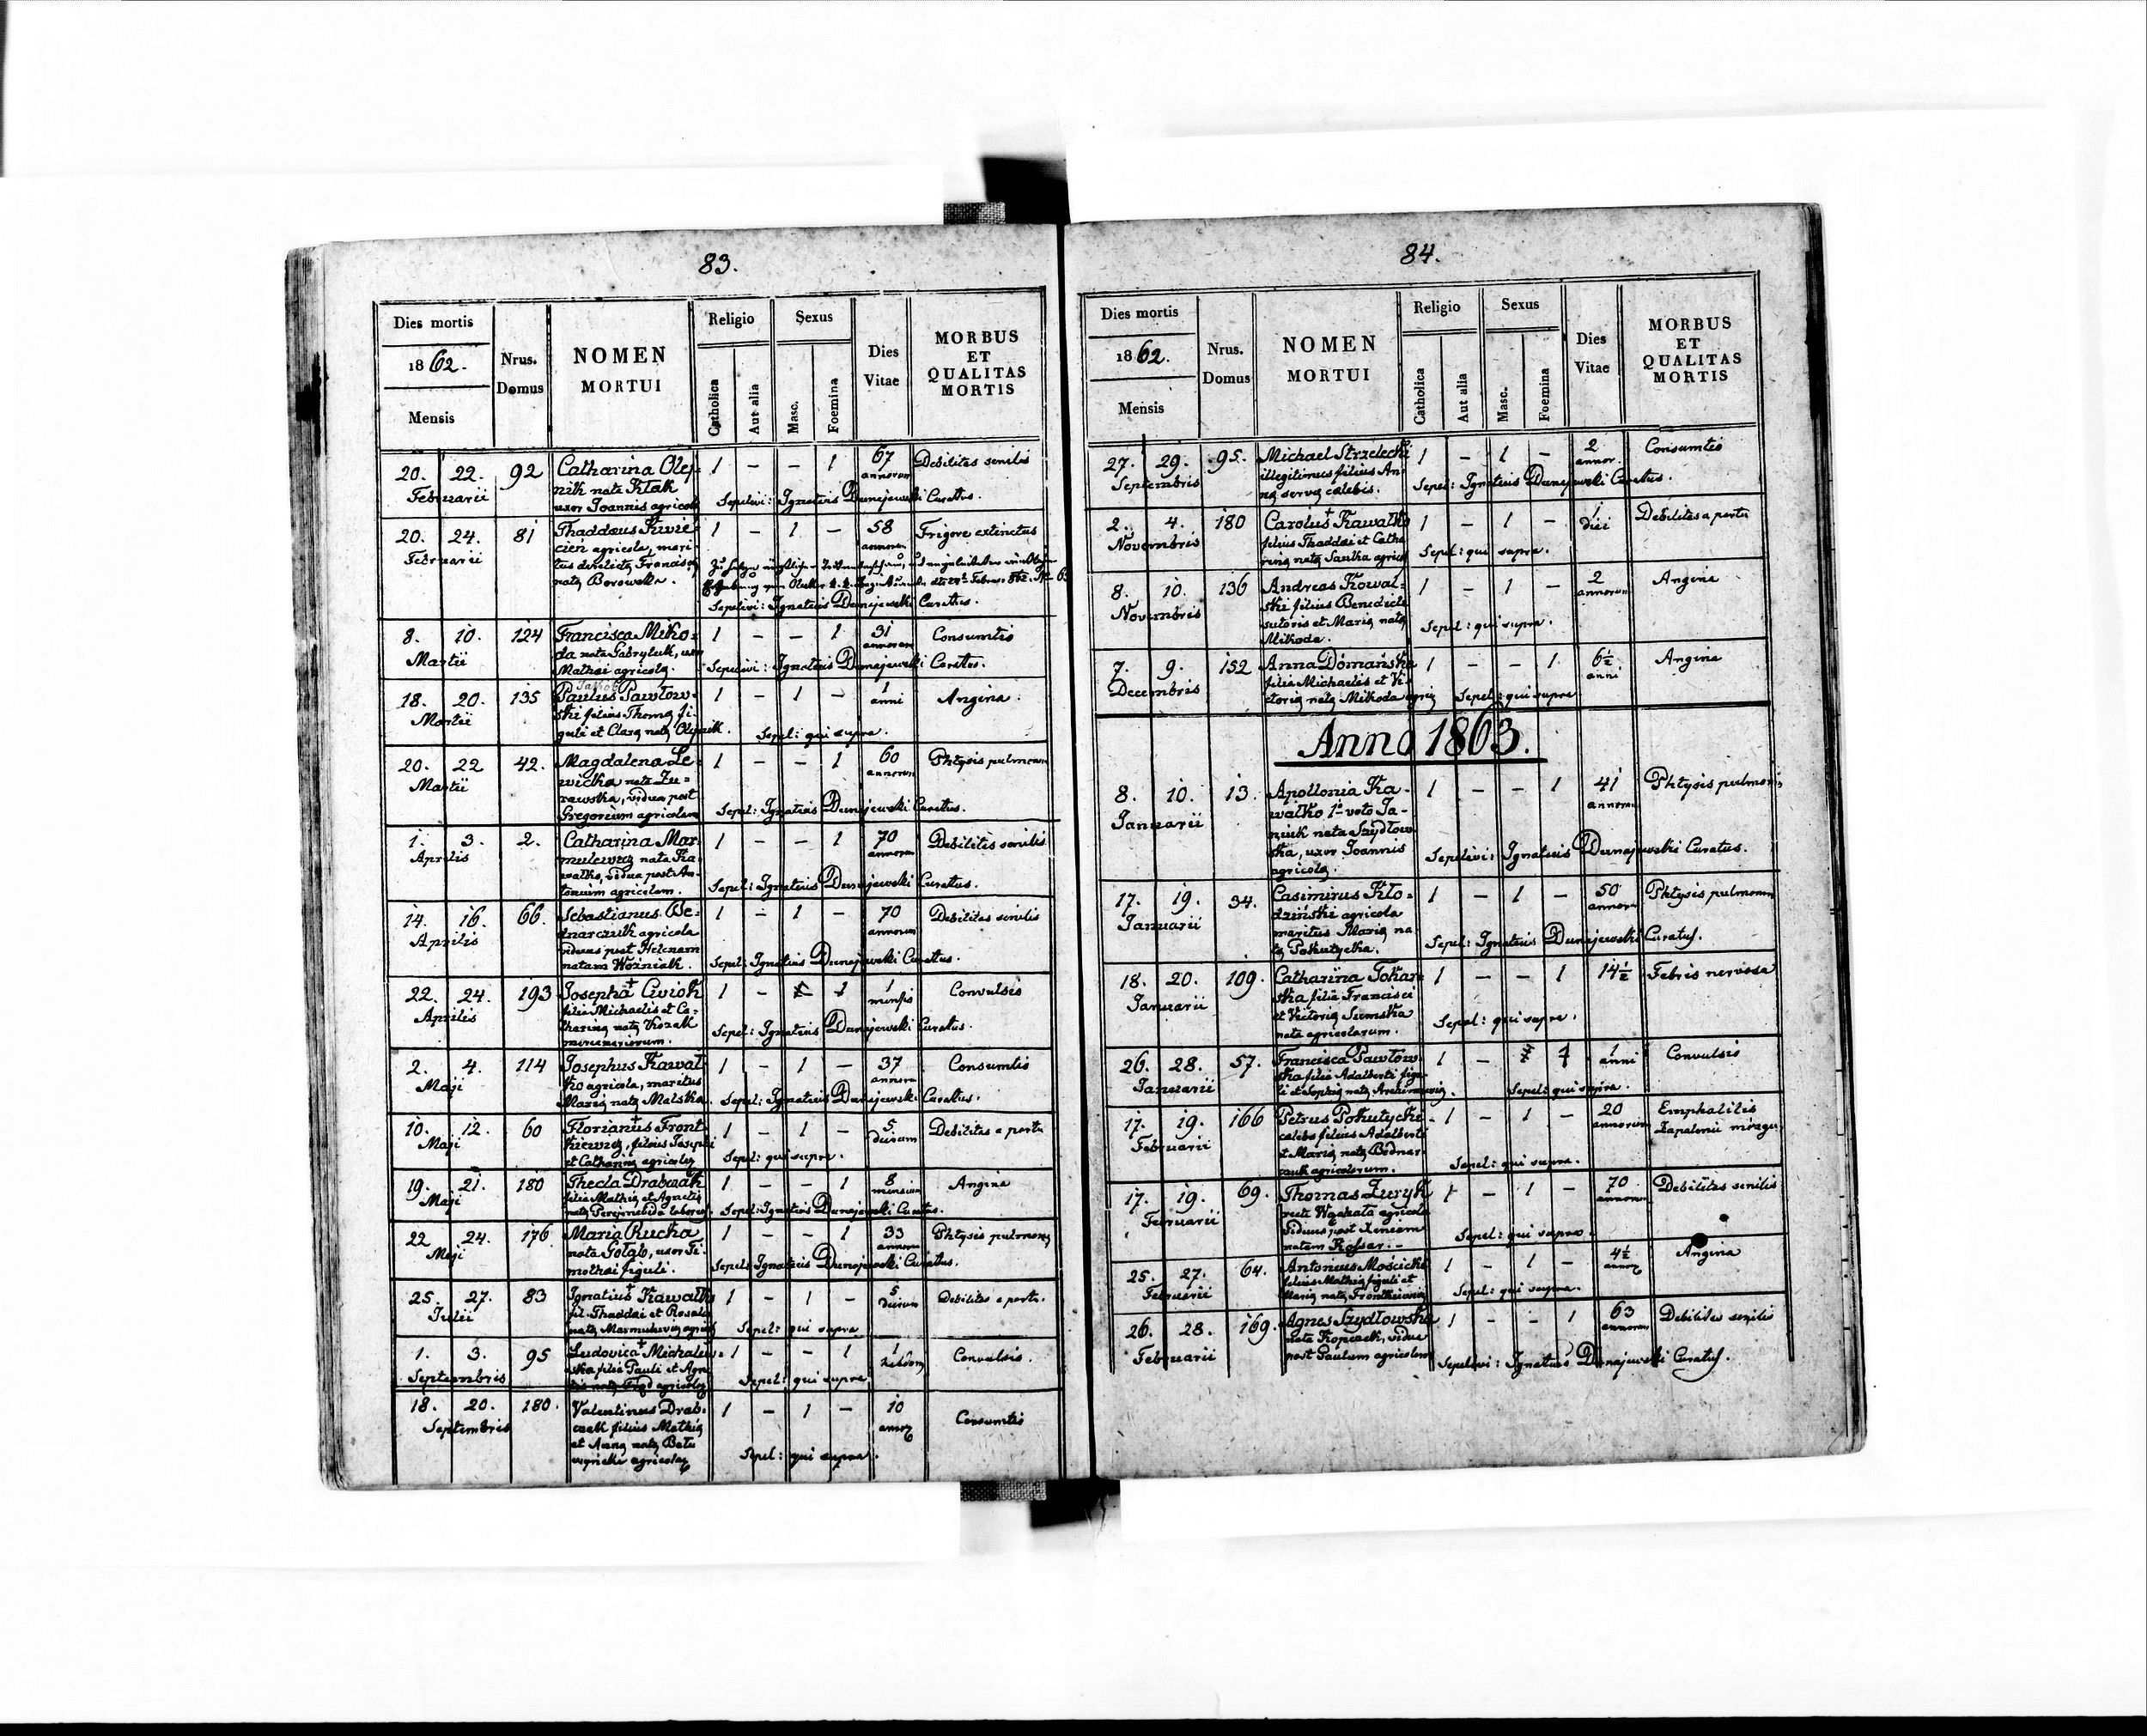 83.
Dies mortis
1862.
Mensis
Nrus.
Domus
NOMEN
MORTUI
Religio
Catholica
Aut alia
Sexus
Masc.
Foemina
Dies
Vitae
MORBUS
ET
QUALITAS
MORTIS
20. 22. 92 Catharina Olej= 1 – – 1 67 Debilitas senilis
Februarii nik nata Kłak annorum
uxor Joannis agricolae Sepelivi: Ignatius Dunajewski Curatus.
20. 24. 81 Thaddaeus Kwie= 1 – 1 – 58 Frigore extinctus
Februarii cień agricola, mari= annorum
tus derelictae Franciscae
natae Borowska.
Sepelivi: Ignatius Dunajewski Curatus.
8. 10. 124 Francisca Miko= 1 – – 1 31 Consumtis
Martii da nata Gabryluk, uxor annorum
Mathaei agricolae. Sepelivi: Ignatius Dunajewski Curatus.
18. 20. 135 Paulus Pawłow= 1 – 1 – 1 Angina.
Martii ski filius Thomae fi= anni
guli et Clarae natae Olejnik. Sepel: qui supra.
20. 22 42. Magdalena Le= 1 – – 1 60 Phtysis pulmonum
Martii wicka nata Żu= annorum
rawska, vidua post
Gregorium agricolam Sepel: Ignatius Dunajewski Curatus.
1. 3. 2. Catharina Mar= 1 – – 1 70 Debilitas senilis
Aprilis mulewicz nata Ka= annorum
wałko, vidua post An=
tonium agricolam. Sepel: Ignatius Dunajewski Curatus.
14. 16. 66. Sebastianus Be= 1 – 1 – 70 Debilitas senilis
Aprilis dnarczuk agricola annorum
viduus post Helenam
natam Woźniak. Sepel: Ignatius Dunajewski Curatus.
22. 24. 193 Josepha Cwiok 1 – 1 1 Convulsis
Aprilis filia Michaelis et Ca= mensis
tharinae natae Kozak
Sepel: Ignatius Dunajewski Curatus.
2. 4. 114 Josephus Kawał= 1 – 1 – 37 Consumtis
Maji ko agricola, maritus annorum
Mariae natae Malska. Sepel: Ignatius Dunajewski Curatus.
10. 12. 60 Florianus Front= 1 – 1 – 5 Debilitas a partu
Maji kiewicz, filius Josephi dierum
et Catharinae agricolae Sepel: qui supra.
19. 21. 180 Thecla Drabczak 1 – – 1 8 Angina
Maji filia Mathiae et Agnetis mensium
Sepel: Ignatius Dunajewski Curatus.
22 24. 176 Maria Rucka 1 – – 1 33 Phtysis pulmonum
Maji nata Gołąb, uxor Ti= annorum
mothei figuli. Sepel: Ignatius Dunajewski Curatus.
25. 27. 83 Ignatius Kawałko 1 – 1 – 5 Debilitas a partu.
Julii fil. Thaddaei et Rosalia dierum
Sepel: qui supra
1. 3. 95 Ludovica Michalew= 1 – – 1 1 Convulsis.
Septembris ska filia Pauli et Agne=
Sepel: qui supra
18. 20. 180. Valentinus Drab= 1 – 1 – 10 Consumtis
Septembris czak filius Mathiae
et Annae natae
agricolae Sepel: qui supra.
84.
Dies mortis
1862.
Mensis
Nrus.
Domus
NOMEN
MORTUI
Religio
Catholica
Aut alia
Sexus
Masc.
Foemina
Dies
Vitae
MORBUS
ET
QUALITAS
MORTIS
27. 29. 95. Michael Strzelecki 1 – 1 – 2 Consumtis
Septembris illegitimus filius An= annor.
nae servae caelebis. Sepel: Ignatius Dunajewski Curatus.
2. 4. 180 Carolus Kawałko 1 – 1 – 1 Debilitas a partu
Novembris filius Thaddaei et Catha diei
rinae natae Saułka agricol Sepel: qui supra.
8. 10. 136 Andreas Kowal= 1 – 1 – 2 Angina
Novembris ski filius Benedicti annorum
sutoris et Mariae natae
Mikoda. Sepel: qui supra.
7. 9. 152 Anna Domańska 1 – – 1 6½ Angina
Decembris filia Michaelis et Vi= anni
ctoriae natae Mikoda agric Sepel: qui supra
Anno 1863.
8. 10. 13. Apollonia Ka= 1 – – 1 41 Phtysis pulmonis
Januarii wałko 1º voto Ja= annorum
niuk nata Szydłow
ska, uxor Joannis Sepelivi: Ignatius Dunajewski Curatus.
agricolae.
17. 19. 34. Casimirus Kło= 1 – 1 – 50 Phtysis pulmonum
Januarii dziński agricola annorum
maritus Mariae na
tae Pokutycka. Sepel: Ignatius Dunajewski Curatus.
18. 20. 109. Catharina Tokar= 1 – – 1 14½ Febris nervosa
Januarii ska filia Francisci
et Victoriae Sumska
nata agricolarum. Sepel: qui supra.
26. 28. 57. Francisca Pawłow 1 – 1 1 Convulsis
Januarii ska filia Adalberti figu= anni
Sepel: qui supra.
17. 19. 166 Petrus Pokutycki 1 – 1 – 20 Emphalitis
Februarii caelebs filius Adalberti annorum Zapalenie mózgu
et Mariae natae Bednar
czuk agricolarum. Sepel: qui supra.
17. 19. 69. Thomas Żuryk 1 – 1 – 70 Debilitas senilis
Februarii agricola annorum
viduus post Xeniam Sepel: qui supra.
natam Kossar.
25. 27. 64. Antonius Mościcki 1 – 1 – 4½ Angina
Februarii filius Mathiae figuli et
Mariae natae Frontkiewicz Sepel: qui supra.
26. 28. 169. Agnes Szydłowska 1 – – 1 63 Debilitas senilis
Februarii nata Kopczak, vidua annorum
post Paulum agricolam Sepelivi: Ignatius Dunajewski Curatus.